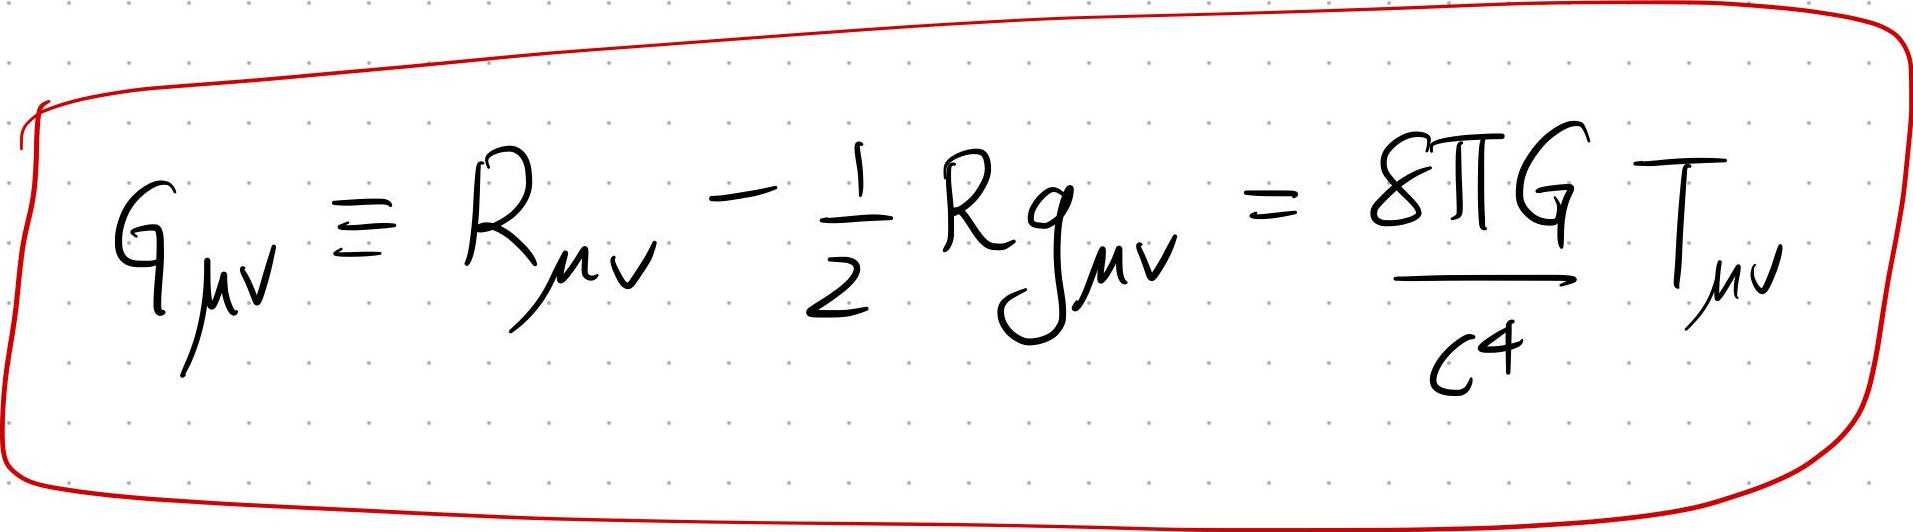 G_μν ≡ R_μν − 1/2 R g_μν = 8πG/c⁴ T_μν